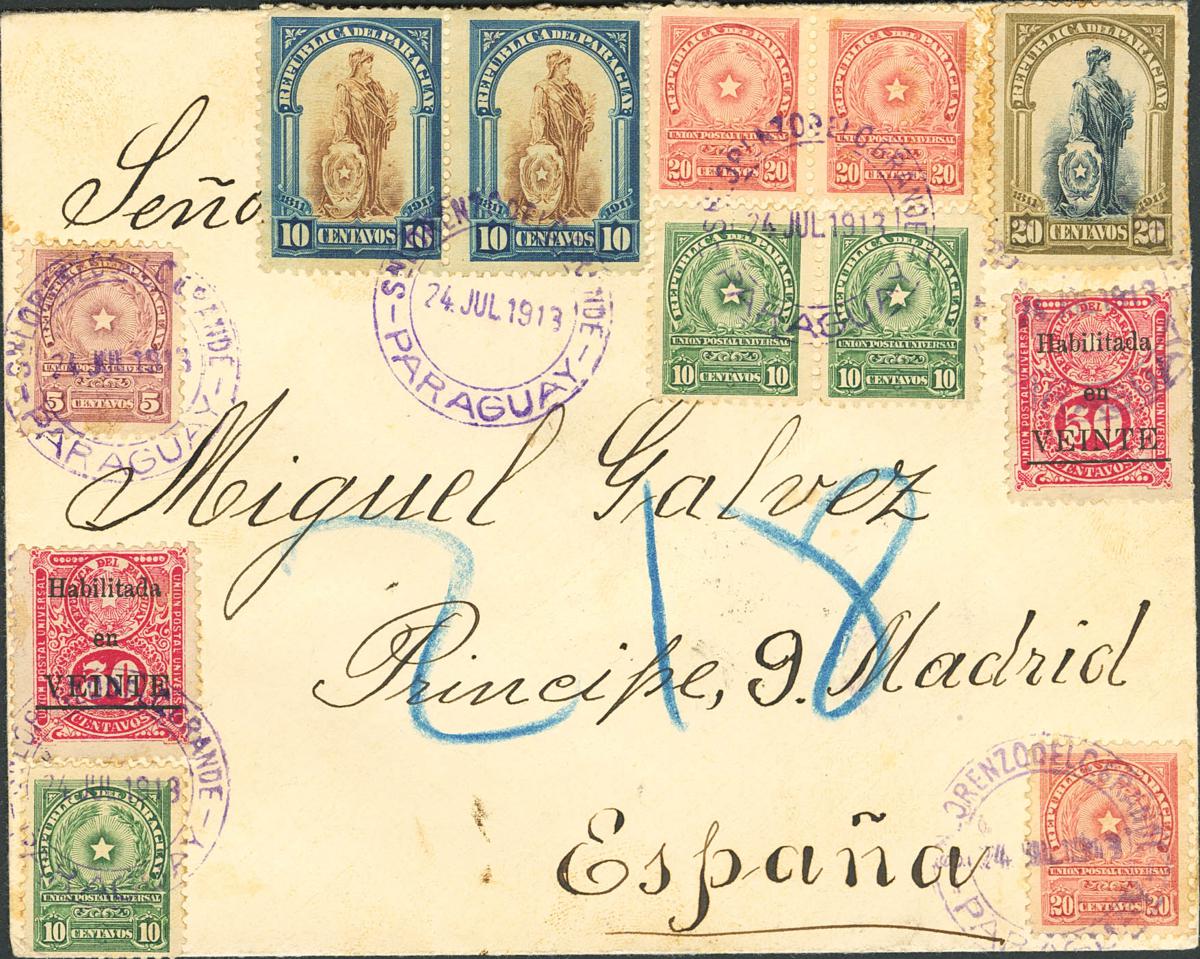 REPUBLICA DEL PARAGUAY
1811 1911
10 CENTAVOS 10
REPUBLICA DEL PARAGUAY
1811 1911
10 CENTAVOS 10
REPUBLICA DEL PARAGUAY
UNION POSTAL UNIVERSAL
20 CENTAVOS 20
REPUBLICA DEL PARAGUAY
UNION POSTAL UNIVERSAL
20 CENTAVOS 20
REPUBLICA DEL PARAGUAY
1811 1911
20 CENTAVOS 20
Seño
24 JUL 1913
PARAGUAY
24 JUL 1913
PARAGUAY
REPUBLICA DEL PARAGUAY
UNION POSTAL UNIVERSAL
10 CENTAVOS 10
REPUBLICA DEL PARAGUAY
UNION POSTAL UNIVERSAL
10 CENTAVOS 10
REPUBLICA DEL PARAGUAY
UNION POSTAL UNIVERSAL
5 CENTAVOS 5
24 JUL 1913
PARAGUAY
UNION POSTAL UNIVERSAL
Habilitada
en
VEINTE
50
CENTAVOS
UNION POSTAL UNIVERSAL
Miguel Galvez
218
Principe, 9. Madrid
España
UNION POSTAL UNIVERSAL
Habilitada
en
VEINTE
30
CENTAVOS
UNION POSTAL UNIVERSAL
24 JUL 1913
REPUBLICA DEL PARAGUAY
UNION POSTAL UNIVERSAL
10 CENTAVOS 10
REPUBLICA DEL PARAGUAY
UNION POSTAL UNIVERSAL
20 CENTAVOS 20
LORENZO DEL C. GRANDE
24 JUL 1913